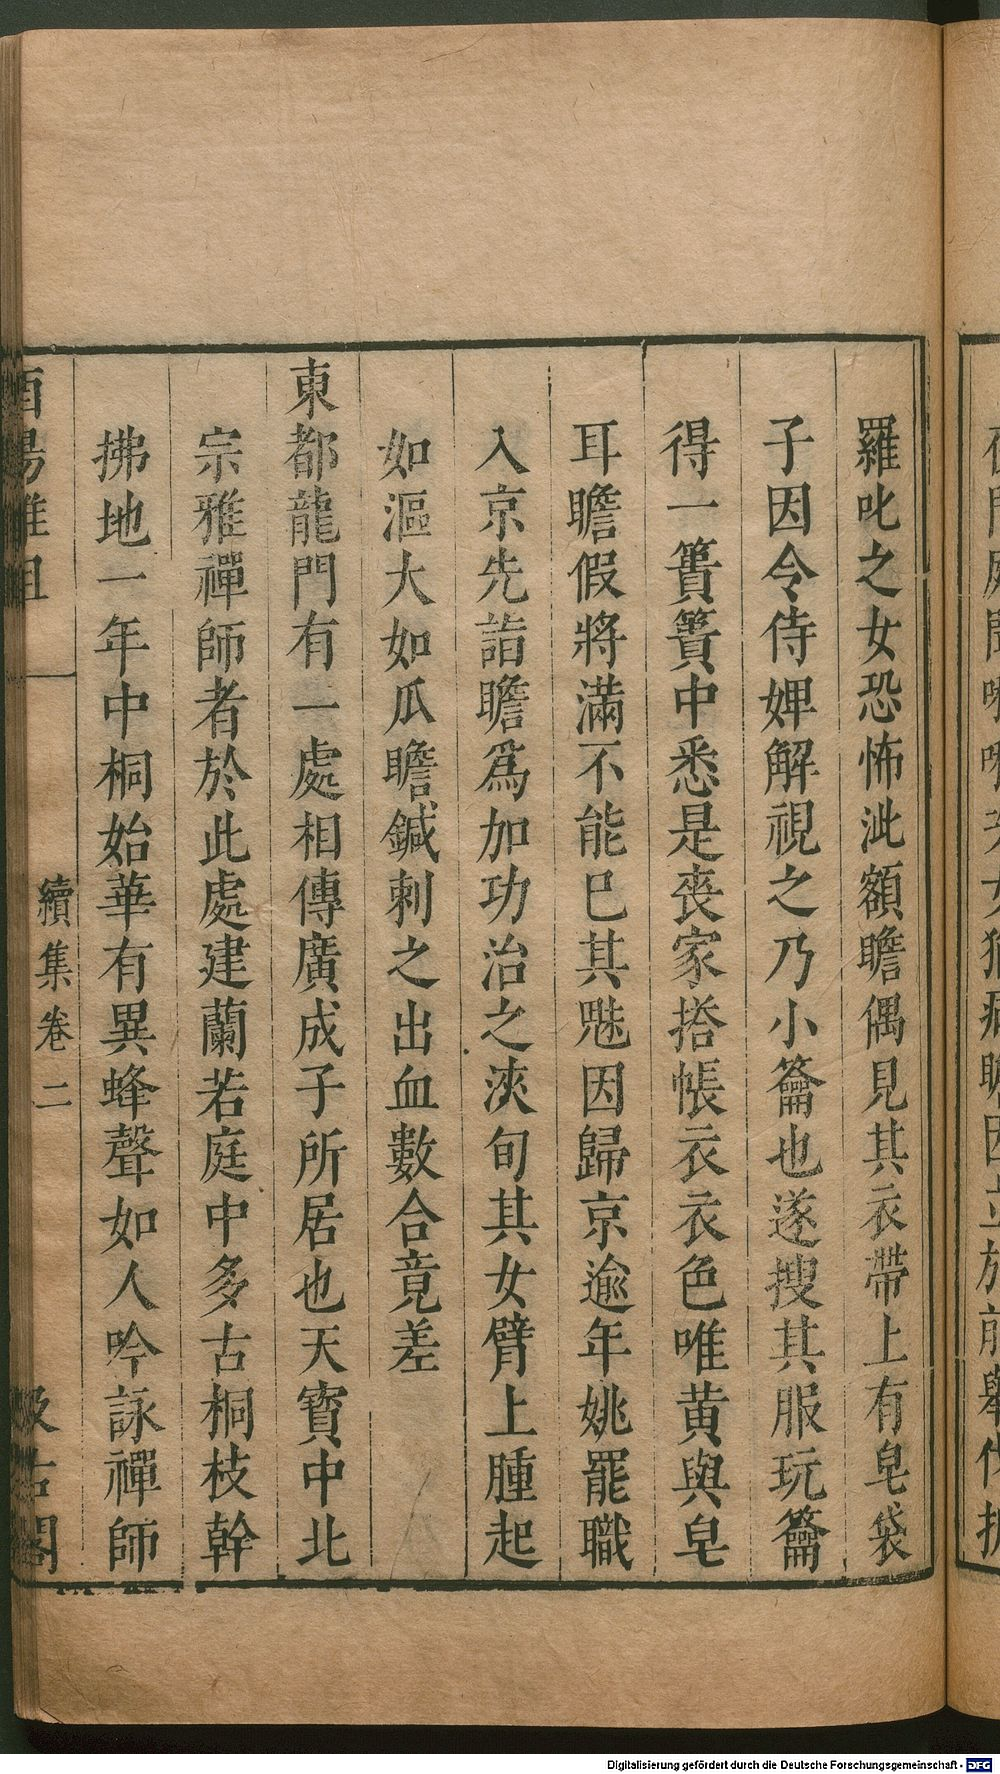 羅叱之女恐怖泚額瞻偶見其衣帶上有皂袋
子因令侍婢解視之乃小籥也遂搜其服玩籥
得一簣簣中悉是喪家搭帳衣衣色唯黄與皂
耳瞻假將滿不能已其魅因歸京逾年姚罷職
入京先詣瞻爲加功治之浹旬其女臂上腫起
如漚大如瓜瞻鍼刺之出血數合竟差
東都龍門有一處相傳廣成子所居也天寶中北
宗雅禪師者於此處建蘭若庭中多古桐枝幹
拂地一年中桐始華有異蜂聲如人吟詠禪師
酉陽雜俎 續集卷二 汲古閣
Digitalisierung gefördert durch die Deutsche Forschungsgemeinschaft - DFG